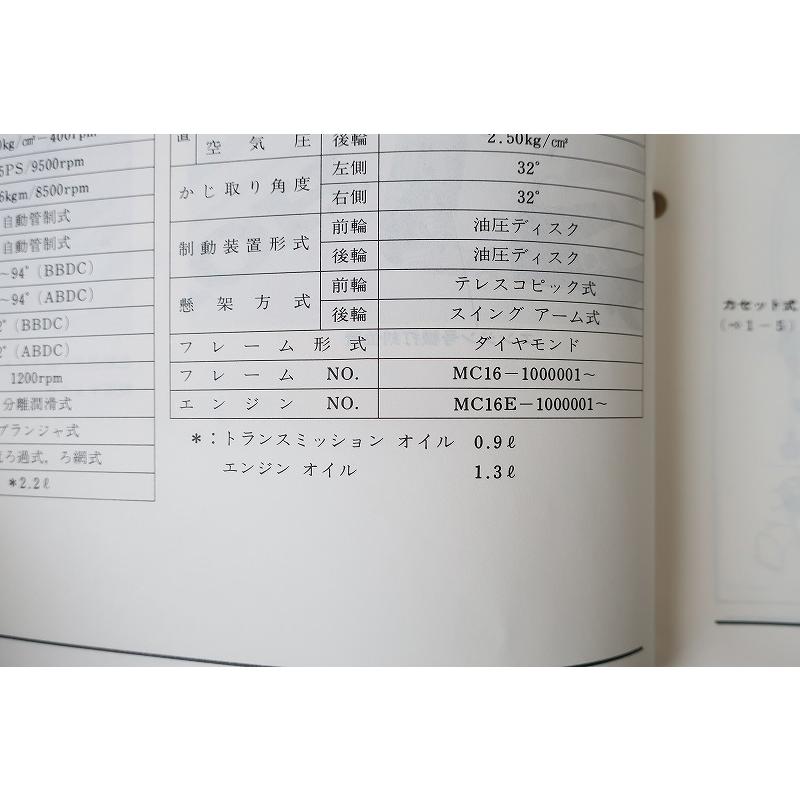 kg/cm²－400rpm
5PS/9500rpm
6kgm/8500rpm
自動管制式
自動管制式
～94°(BBDC)
～94°(ABDC)
2°(BBDC)
2°(ABDC)
1200rpm
分離潤滑式
プランジャ式
ろ過式，ろ網式
*2.2ℓ
置 空気圧 後輪 2.50kg/cm²
かじ取り角度 左側 32°
右側 32°
制動装置形式 前輪 油圧ディスク
後輪 油圧ディスク
懸架方式 前輪 テレスコピック式
後輪 スイング アーム式
フレーム形式 ダイヤモンド
フレーム NO. MC16－1000001～
エンジン NO. MC16E－1000001～
*：トランスミッション オイル 0.9ℓ
エンジン オイル 1.3ℓ
カセット式
(⇨1－5)